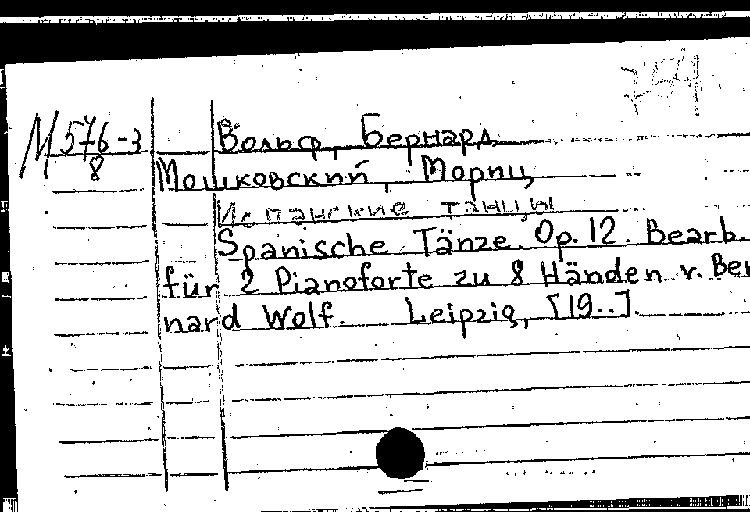 754
M 576-3
8
Вольф, Бернард
Мошковский, Мориц
Испанские танцы
Spanische Tänze. Op. 12. Bearb.
für 2 Pianoforte zu 8 Händen v. Ber
nard Wolf. Leipzig, [19..].